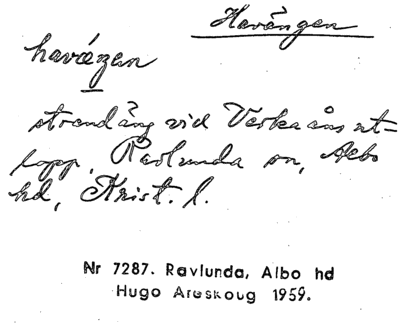 Havängen
haváŋen
strandäng vid Verkaåns ut-
lopp, Ravlunda sn, Albo
hd, Krist. l.
Nr 7287. Ravlunda, Albo hd
Hugo Areskoug 1959.